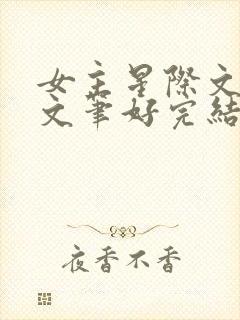 女主星際文
文筆好完結
夜香不香